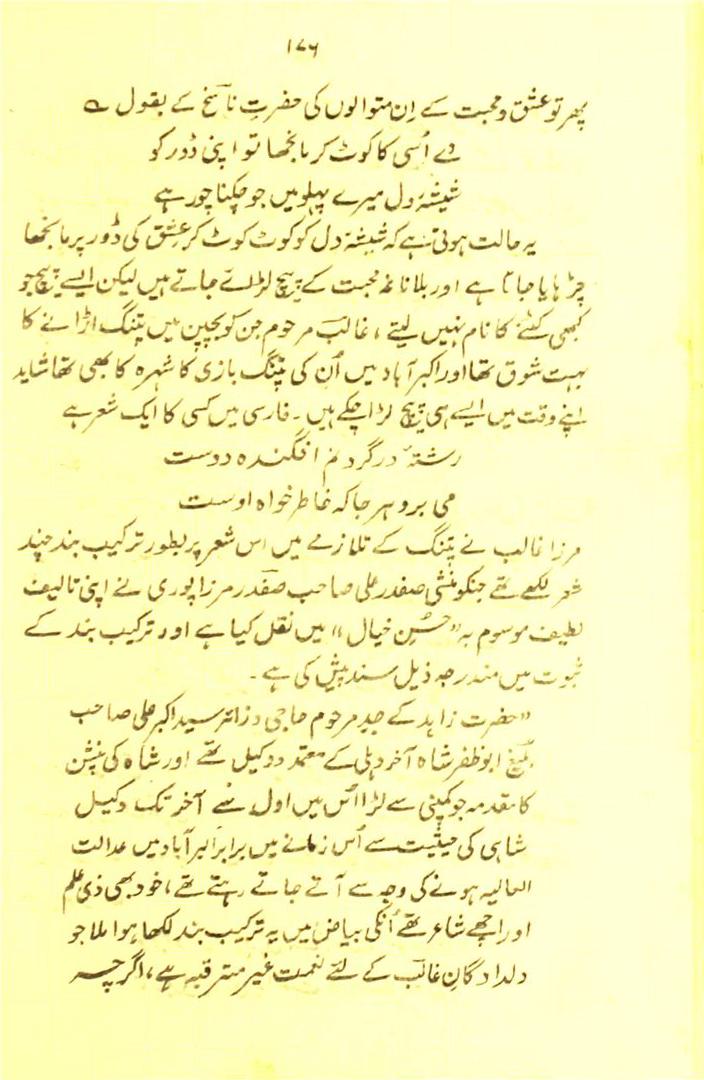 ۱۷۶
پھر تو عشق و محبت کے اِن متوالوں کی حضرتِ ناسخ کے بقول ؎
دے اُسی کا کوٹ کر مانجھا تو اپنی ڈور کو
شیشۂ دل میرے پہلو میں جو چکنا چور ہے
یہ حالت ہوتی ہے کہ شیشۂ دل کو کوٹ کوٹ کر عشق کی ڈور پر مانجھا
چڑہایا جاتا ہے اور بلا ناغہ محبت کے پیچ لڑائے جاتے ہیں لیکن ایسے پیچ جو
کبھی کٹنے کا نام نہیں لیتے ، غالبؔ مرحوم جن کو بچپن میں پتنگ اڑانے کا
بہت شوق تھا اور اکبرآباد میں اُن کی پتنگ بازی کا شہرہ کا بھی تھا شاید
اپنے وقت میں ایسے ہی پیچ لڑا چکے ہیں ۔ فارسی میں کسی کا ایک شعر ہے
رشتۂ در گردنم افگندہ دوست
می برد ہر جا کہ خاطر خواہ اوست
مرزا غالب نے پتنگ کے تلازمے میں اس شعر پر بطور ترکیب بند چند
شعر لکھے تھے جنکو منشی صفدر علی صاحب صفدرؔ مرزا پوری نے اپنی تالیف
لطیف موسوم بہ "حُسنِ خیال" میں نقل کیا ہے اور ترکیب بند کے
ثبوت میں مندرجہ ذیل سند پیش کی ہے ۔
"حضرت زاہد کے جدِ مرحوم حاجی و زائر سید اکبر علی صاحب
بلیغؔ ابوظفر شاہ آخر دہلی کے معتمد و وکیل تھے اور شاہ کی پنشن
کا مقدمہ جو کمپنی سے لڑا اُس میں اول سے آخر تک وکیل
شاہی کی حیثیت سے اُس زمانے میں برابر اکبرآباد میں عدالت
العالیہ ہونے کی وجہ سے آتے جاتے رہتے تھے ، خود بھی ذی علم
اور اچھے شاعر تھے اُنکی بیاض میں یہ ترکیب بند لکھا ہوا ملا جو
دلدادگانِ غالب کے لئے نعمت غیر مترقبہ ہے ، اگرچہ